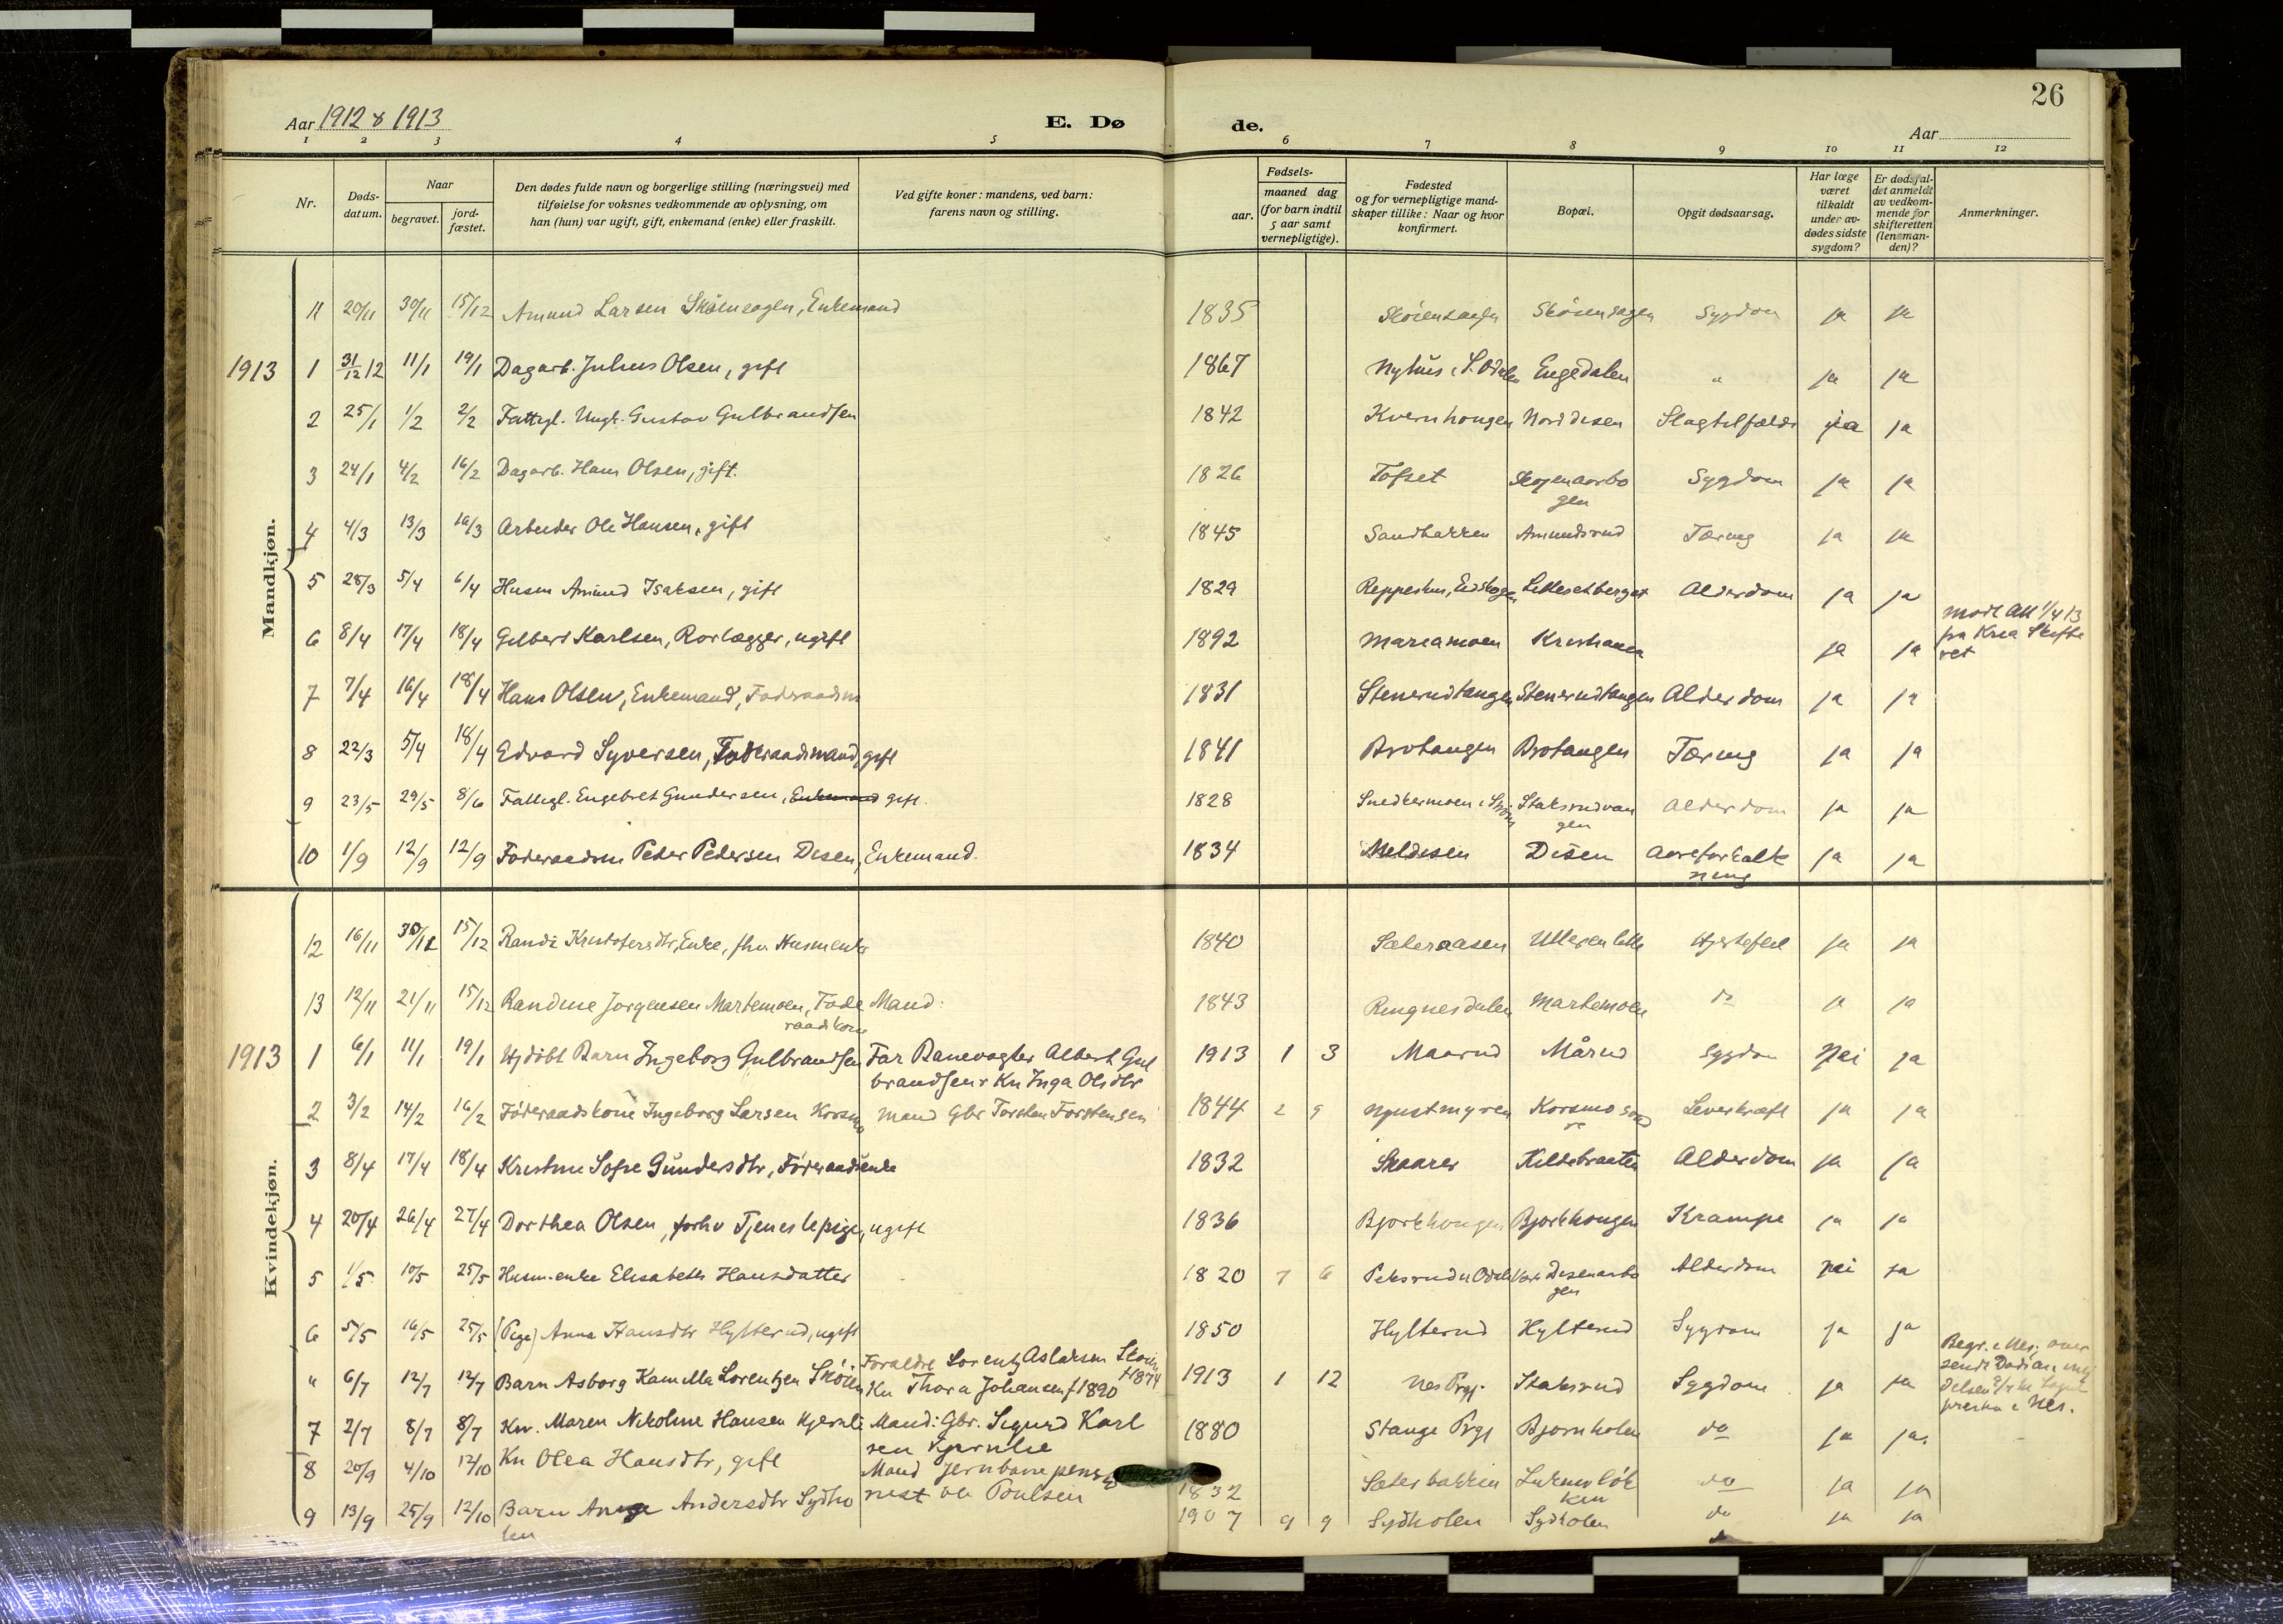 26
Aar 1912 & 1913
E. Dø de.
Aar
1 2 3 4 5 6 7 8 9 10 11 12
Nr.
Døds-
datum.
Naar
begravet.
jord-
fæstet.
Den dødes fulde navn og borgerlige stilling (næringsvei) med
tilføielse for voksnes vedkommende av oplysning, om
han (hun) var ugift, gift, enkemand (enke) eller fraskilt.
Ved gifte koner: mandens, ved barn:
farens navn og stilling.
Fødsels-
aar.
maaned dag
(for barn indtil
5 aar samt
vernepligtige).
Fødested
og for vernepligtige mand-
skaper tillike: Naar og hvor
konfirmert.
Bopæl.
Opgit dødsaarsag.
Har læge
været
tilkaldt
under av-
dødes sidste
sygdom?
Er dødsfal-
det anmeldt
av vedkom-
mende for
skifteretten
(lensman-
den)?
Anmerkninger.
Mandkjøn.
11 20/11 30/11 15/12 Amund Larsen Skøiensagen, Enkemand 1835 Skøiensagen Skøiensagen Sygdom ja ja
1913 1 31/12 12 11/1 19/1 Dagarb. Julius Olsen, gift 1867 Nyhus i S. Odalen Engedalen " ja ja
2 25/1 1/2 2/2 Fattigl. Ungk. Gustav Gulbrandsen 1842 Kvernhougen Nord disen Slagtilfælde ja ja
3 24/1 4/2 16/2 Dagarb. Hans Olsen, gift. 1826 Tofset Skogenaarbo
gen Sygdom ja ja
4 4/3 13/3 16/3 Arbeider Ole Hansen, gift 1845 Sandbakken Amundsrud Tæring ja ja
5 28/3 5/4 6/4 Husm Amund Isaksen, gift 1829 Reppeshus, Eidskogen Lillesetberget Alderdom ja ja
6 8/4 17/4 18/4 Gilbert Karlsen, Rørlægger, ugift 1892 Mariamoen Kristiania ja ja
Modt Att 1/4 13
fra Kria Skifte
ret
7 7/4 16/4 18/4 Hans Olsen, Enkemand, Føderaadsm 1831 Stenerudtangen Stenerudtangen Alderdom ja ja
8 22/3 5/4 18/4 Edvard Syversen, Føderaadsmand, gift 1841 Brotangen Brotangen Tæring ja ja
9 23/5 29/5 8/6 Fattigl. Engebret Gundersen, Enkemand gift. 1828 Snedkermoen i Strøm Staksrudvan
gen Alderdom ja ja
10 1/9 12/9 12/9 Føderaadsm Peder Pedersen Disen, Enkemand. 1834 Meldisen Disen Aareforkalk
ning ja ja
Kvindekjøn.
12 16/11 30/11 15/12 Randi Kristofersdtr, Enke, fhv. Husmenke 1840 Sæteraasen Ulleren lille Hjertefeil ja ja
13 12/11 21/11 15/12 Randine Jørgensen Martemoen, Føde
raadskone Mand: 1843 Ringnesdalen Martemoen do ja ja
1913 1 6/1 11/1 19/1 Hjdøbt Barn Ingeborg Gulbrandsen Far Banevogter Albert Gul
brandsen & Kn Inga Olsdtr 1913 1 3 Maarud Mårud Sygdom Nei ja
2 3/2 14/2 16/2 Føderaadskone Ingeborg Larsen Korsmo Mand Gbr Torsten Torstensen 1844 2 9 Korsmo Leverkræft ja ja
3 8/4 17/4 18/4 Kristine Sofie Gundersdtr, Føderaadsenke 1832 Skaarer Kildebraaten Alderdom ja ja
4 20/4 26/4 27/4 Dorthea Olsen, forhv Tjenestepige, ugift 1836 Bjørkhougen Bjørkhougen Krampe ja ja
5 1/5 10/5 25/5 Husm-enke Elisabeth Hansdatter 1820 7 6 Peksrud N Odal Disenaarbo
gen Alderdom Nei ja
6 5/5 16/5 25/5 (Pige) Anna Hansdtr Hylterud, ugift 1850 Hylterud Hylterud Sygdom ja ja
" 6/7 12/7 12/7 Barn Asborg Kamilla Lorentzen Skøien Foraldre Lorentz Aslaksen Skøien f 1874
Kn Thora Johansen f 1890 1913 1 12 Nes Prgj. Staksrud Sygdom ja ja
Begr. i Nes;
presten i Nes.
7 2/7 8/7 8/7 Kn. Maren Nikoline Hansen Kjernli Mand: Gbr. Sigurd Karl
sen Kjernlie 1880 Stange Prgj Bjørnholen do ja ja.
8 20/9 4/10 12/10 Kn Olea Hansdtr, gift Mand Jernbane pensjo
nist Ole Poulsen 1832 Sæterbakken do ja ja
9 13/9 25/9 12/10 Barn Andersdtr Sydho
len 1907 9 9 Sydholen Sydholen do ja ja